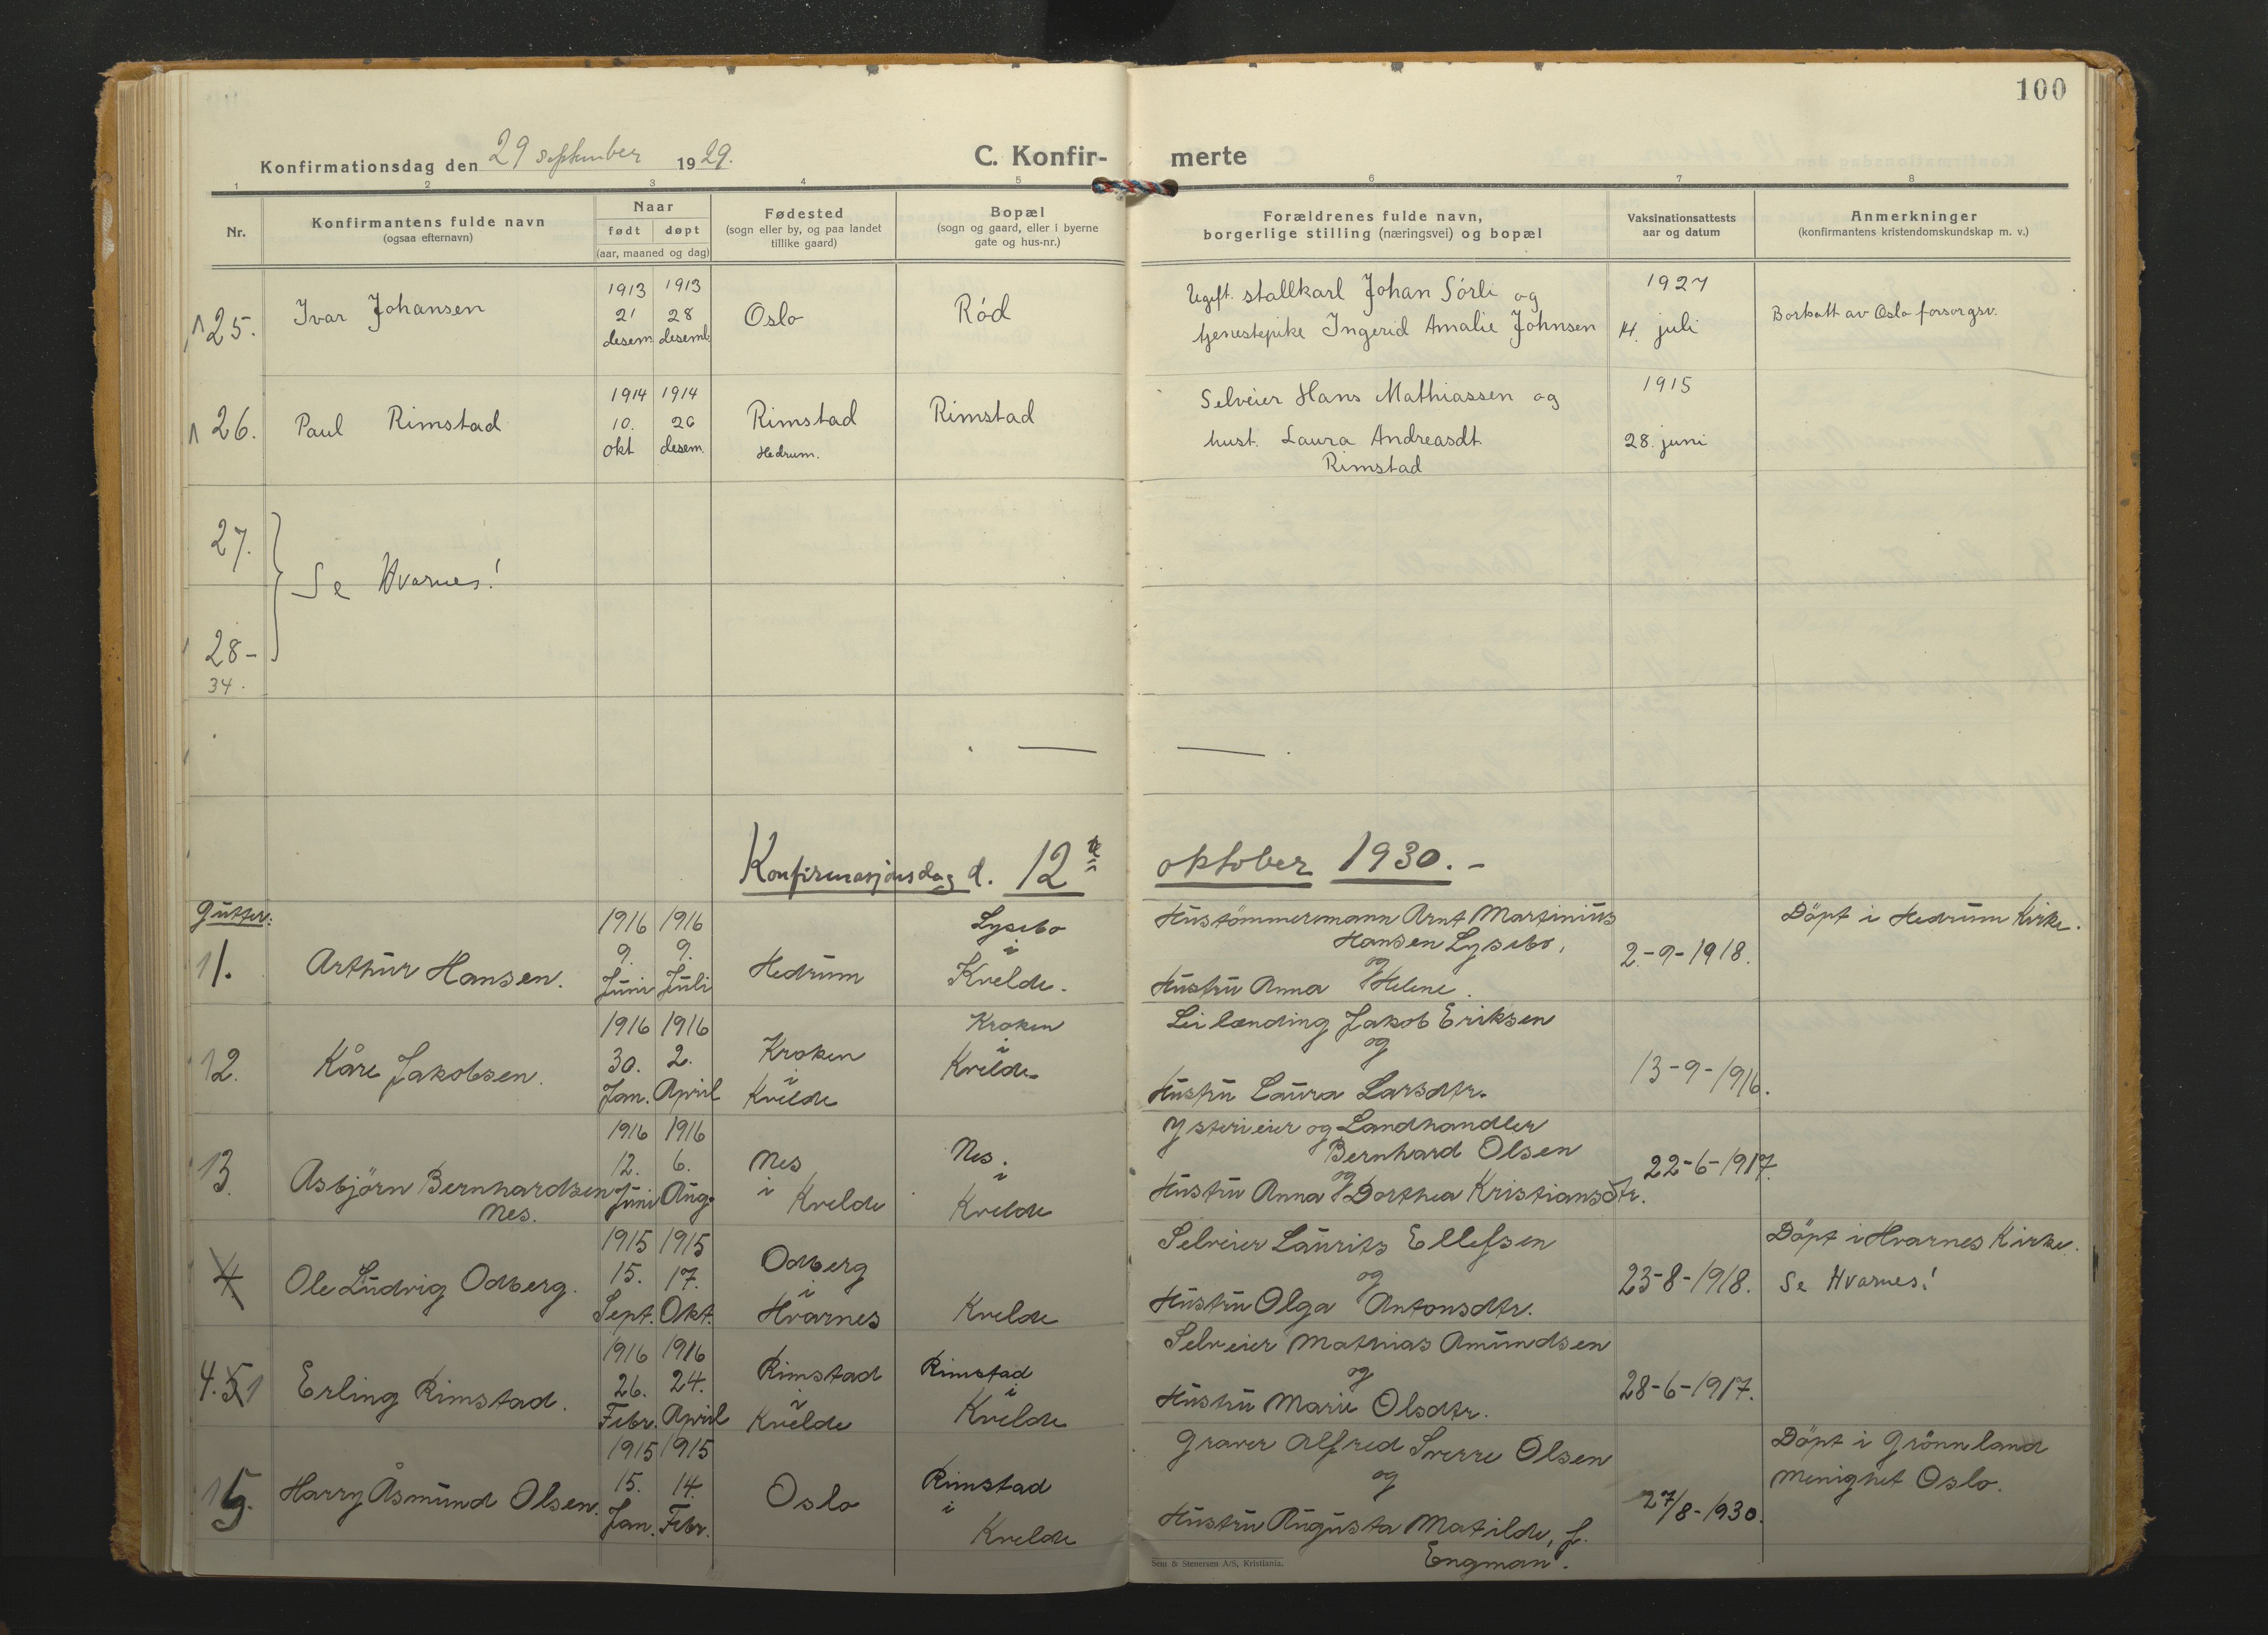 100
Konfirmationsdag den 29 september 1929.
C. Konfir-merte
1 2 3 4 5 6 7 8
Nr.
Konfirmantens fulde navn
(ogsaa efternavn)
Naar
født døpt
(aar, maaned og dag)
Fødested
(sogn eller by, og paa landet
tillike gaard)
Bopæl
(sogn og gaard, eller i byerne
gate og hus-nr.)
Forældrenes fulde navn,
borgerlige stilling (næringsvei) og bopæl
Vaksinationsattests
aar og datum
Anmerkninger
(konfirmantens kristendomskundskap m. v.)
25.
Ivar Johansen
1913 1913
21 28
desem. desemb.
Oslo
Ród
Ugift. stallkarl Johan Sórli og
tjenestepike Ingerid Amalie Johnsen
1927
14. juli
Bortsatt av Oslo forsorgsv.
26.
Paul Rimstad
1914 1914
10. 26
okt desem.
Rimstad
Hedrum.
Rimstad
Selveier Hans Mathiassen og
hust. Laura Andreasdt.
Rimstad
1915
28. juni
27.
Se Hvarnes!
28-
34.
Konfirmasjonsdag d. 12te oktober 1930.-
Gutter:
1.
Arthur Hansen.
1916 1916
9. 9.
Juni Juli
Hedrum
Lysebo
i
Kvelde.
Hustömmermann Arnt Martinius
Hansen Lysebo,
og
Hustru Anna Helene.
2-9-1918.
Döpt i Hedrum Kirke.
2.
Kåre Jakobsen.
1916 1916
30. 2.
Jan. April
Kroken
i
Kvelde
Kroken
i
Kvelde
Leilænding Jakob Eriksen
og
Hustru Laura Larsdtr.
13-9-1916.
3.
Asbjörn Bernhardsen
Nes.
1916 1916
12. 6.
Juni Aug.
Nes
i
Kvelde
Nes.
i
Kvelde
Ysterieier og Landhandler
Bernhard Olsen
og
Hustru Anna Dorthea Kristiansdtr.
22-6-1917.
4.
Ole Ludvig Odberg.
1915 1915
15. 17.
Sept. Okt.
Odberg
i
Hvarnes
Kvelde
Selveier Laurits Ellefsen
og
Hustru Olga Antonsdtr.
23-8-1918.
Döpt i Hvarnes Kirke.
Se Hvarnes!
4. 5
Erling Rimstad.
1916 1916
26. 24.
Febr. April
Rimstad
i
Kvelde
Rimstad
i
Kvelde
Selveier Mathias Amundsen
og
Hustru Marie Olsdtr.
28-6-1917.
5.
Harry Åsmund Olsen.
1915 1915
15. 14.
Jan. Febr.
Oslo
Rimstad
i
Kvelde
Graver Alfred Sverre Olsen
og
Hustru Augusta Matilde, f.
Engman.
27/8-1930.
Döpt i Grönnland
Menighet Oslo.
Sem & Stenersen A/S, Kristiania.